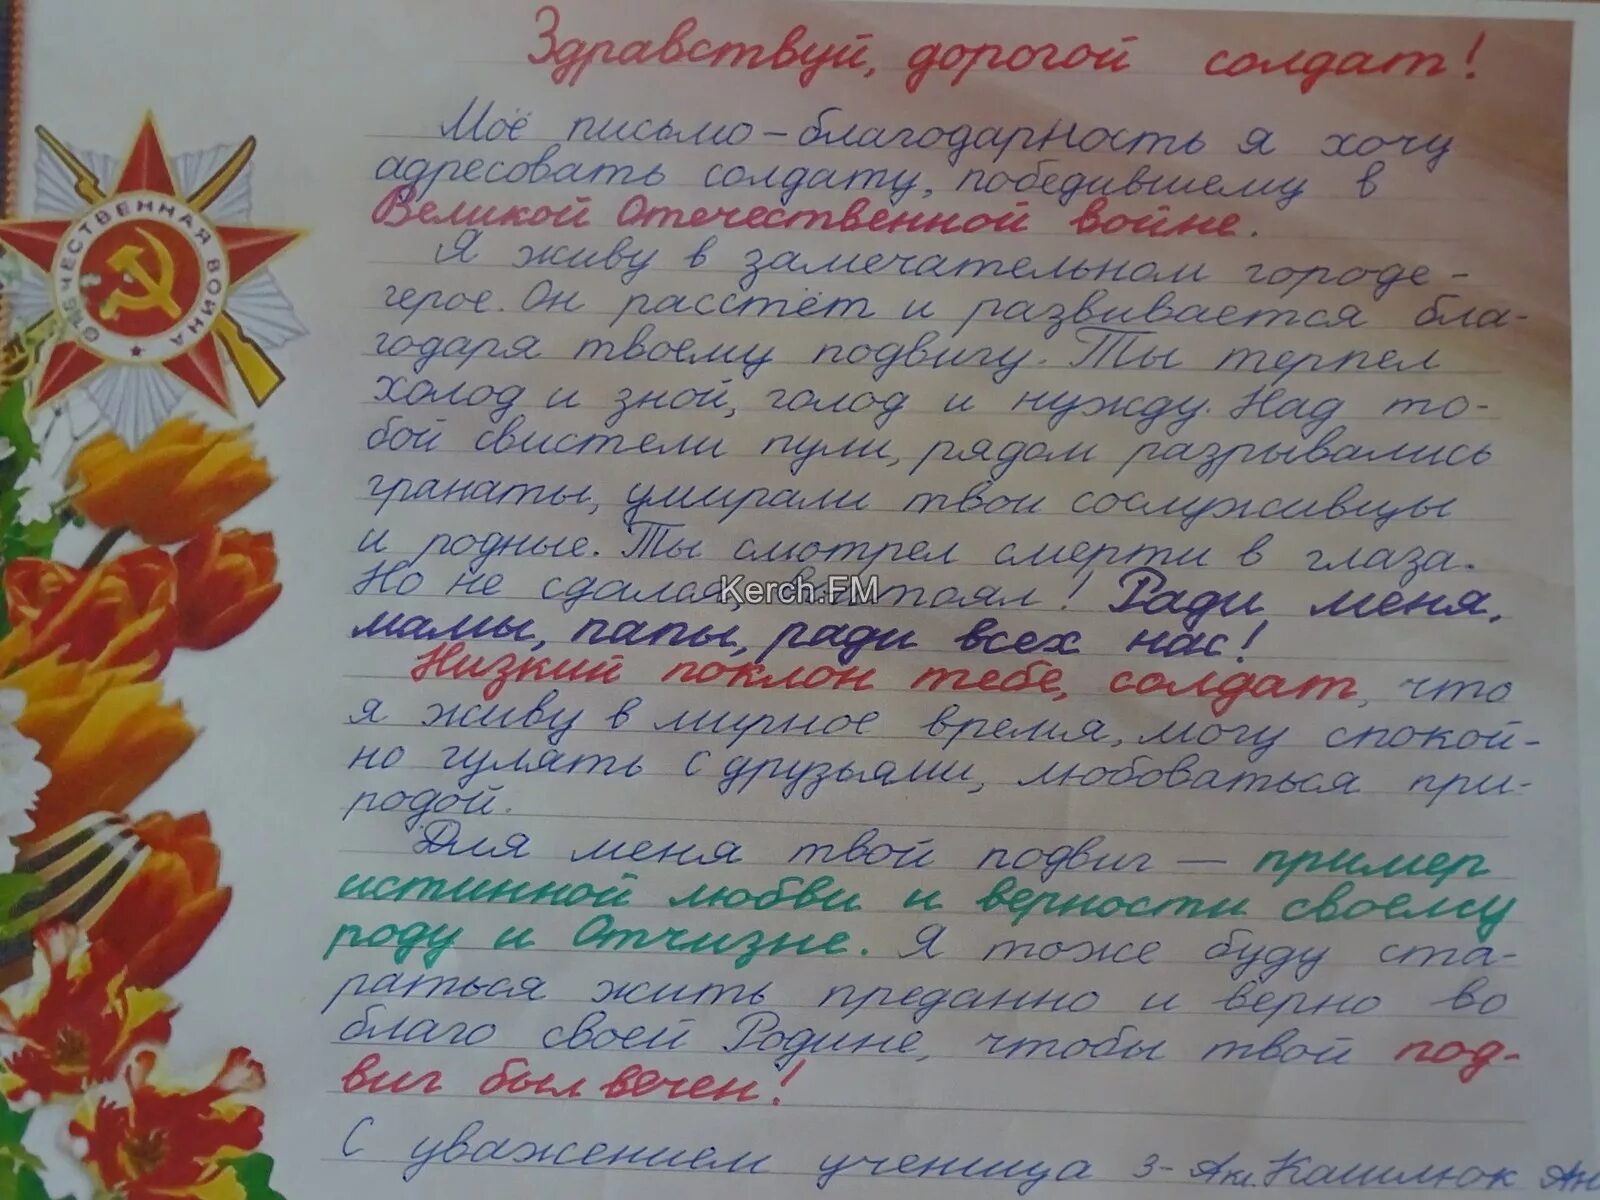 Здравствуй, дорогой солдат!
Моё письмо-благодарность я хочу
адресовать солдату, победившему в
Великой Отечественной войне.
Я живу в замечательном городе-
герое. Он расстёт и развивается бла-
годаря твоему подвигу. Ты терпел
холод и зной, голод и нужду. Над то-
бой свистели пули, рядом разрывались
гранаты, умирали твои сослуживцы
и родные. Ты смотрел смерти в глаза.
Но не сдался, выстоял! Ради меня,
мамы, папы, ради всех нас!
Низкий поклон тебе, солдат, что
я живу в мирное время, могу спокой-
но гулять с друзьями, любоваться при-
родой.
Для меня твой подвиг — пример
истинной любви и верности своему
роду и Отчизне. Я тоже буду ста-
раться жить преданно и верно во
благо своей Родине, чтобы твой под-
виг был вечен!
С уважением ученица 3-А кл. Кашлюк Ан
ОТЕЧЕСТВЕННАЯ ВОЙНА
Kerch.FM